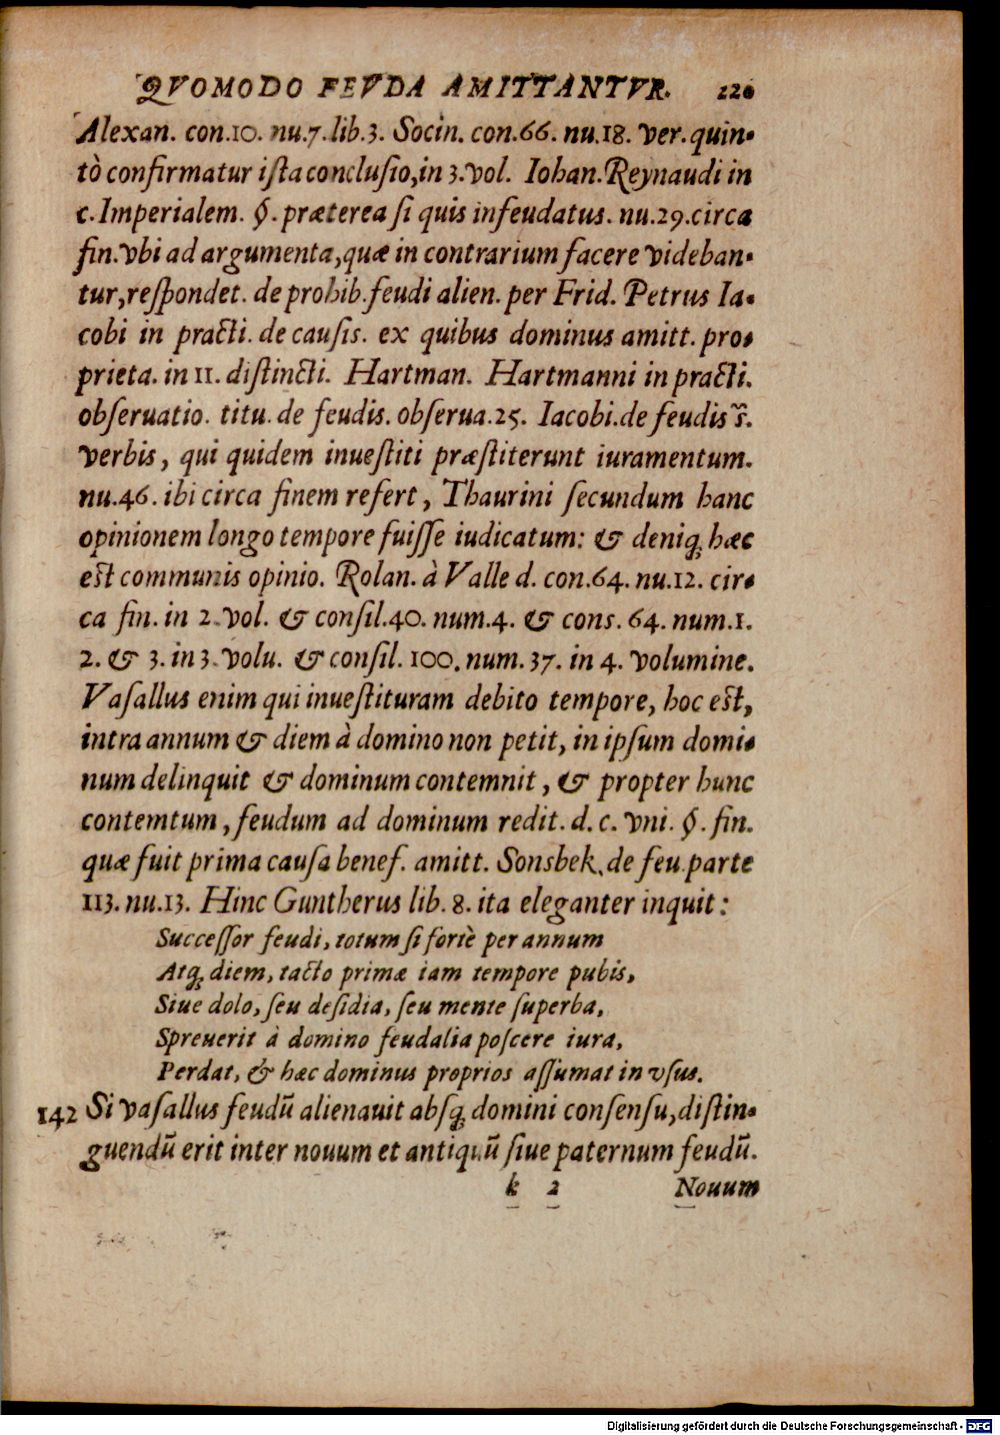 QVOMODO FEVDA AMITTANTVR. 220
Alexan. con.10. nu.7.lib.3. Socin. con.66. nu.18. ver.quin-
tò confirmatur iſta concluſio,in 3.vol. Iohan.Reynaudi in
c.Imperialem. §. præterea ſi quis infeudatus. nu.29.circa
fin.vbi ad argumenta,quæ in contrarium facere videban-
tur,reſpondet. de prohib.feudi alien. per Frid. Petrus Ia-
cobi in practi. de cauſis. ex quibus dominus amitt. pro-
prieta. in 11. diſtincti. Hartman. Hartmanni in practi.
obſeruatio. titu. de feudis. obſerua.25. Iacobi.de feudis ꝟ.
verbis, qui quidem inueſtiti præſtiterunt iuramentum.
nu.46. ibi circa finem refert, Thaurini ſecundum hanc
opinionem longo tempore fuiſſe iudicatum: & deniq; hæc
eſt communis opinio. Rolan. à Valle d. con.64. nu.12. cir-
ca fin. in 2.vol. & conſil.40. num.4. & cons. 64. num.1.
2. & 3. in 3.volu. & conſil. 100. num. 37. in 4. volumine.
Vaſallus enim qui inueſtituram debito tempore, hoc eſt,
intra annum & diem à domino non petit, in ipſum domi-
num delinquit & dominum contemnit, & propter hunc
contemtum, feudum ad dominum redit. d. c. vni. §. fin.
quæ fuit prima cauſa benef. amitt. Sonsbek.de feu.parte
113. nu.13. Hinc Guntherus lib. 8. ita eleganter inquit:
Succeſſor feudi, totum ſi fortè per annum
Atq; diem, tacto primæ iam tempore pubis,
Siue dolo, ſeu deſidia, ſeu mente ſuperba,
Spreuerit à domino feudalia poſcere iura,
Perdat, & hæc dominus proprios aſſumat in vſus.
142 Si vaſallus feudū alienauit abſq; domini conſenſu,diſtin-
guendū erit inter nouum et antiquū ſiue paternum feudū.
k 2 Nouum
Digitalisierung gefördert durch die Deutsche Forschungsgemeinschaft - DFG